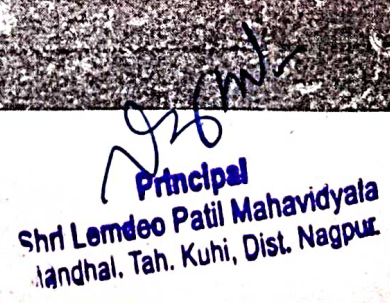 Principal
Shri Lemdeo Patil Mahavidyala
Mandhal, Tah. Kuhi, Dist. Nagpur.